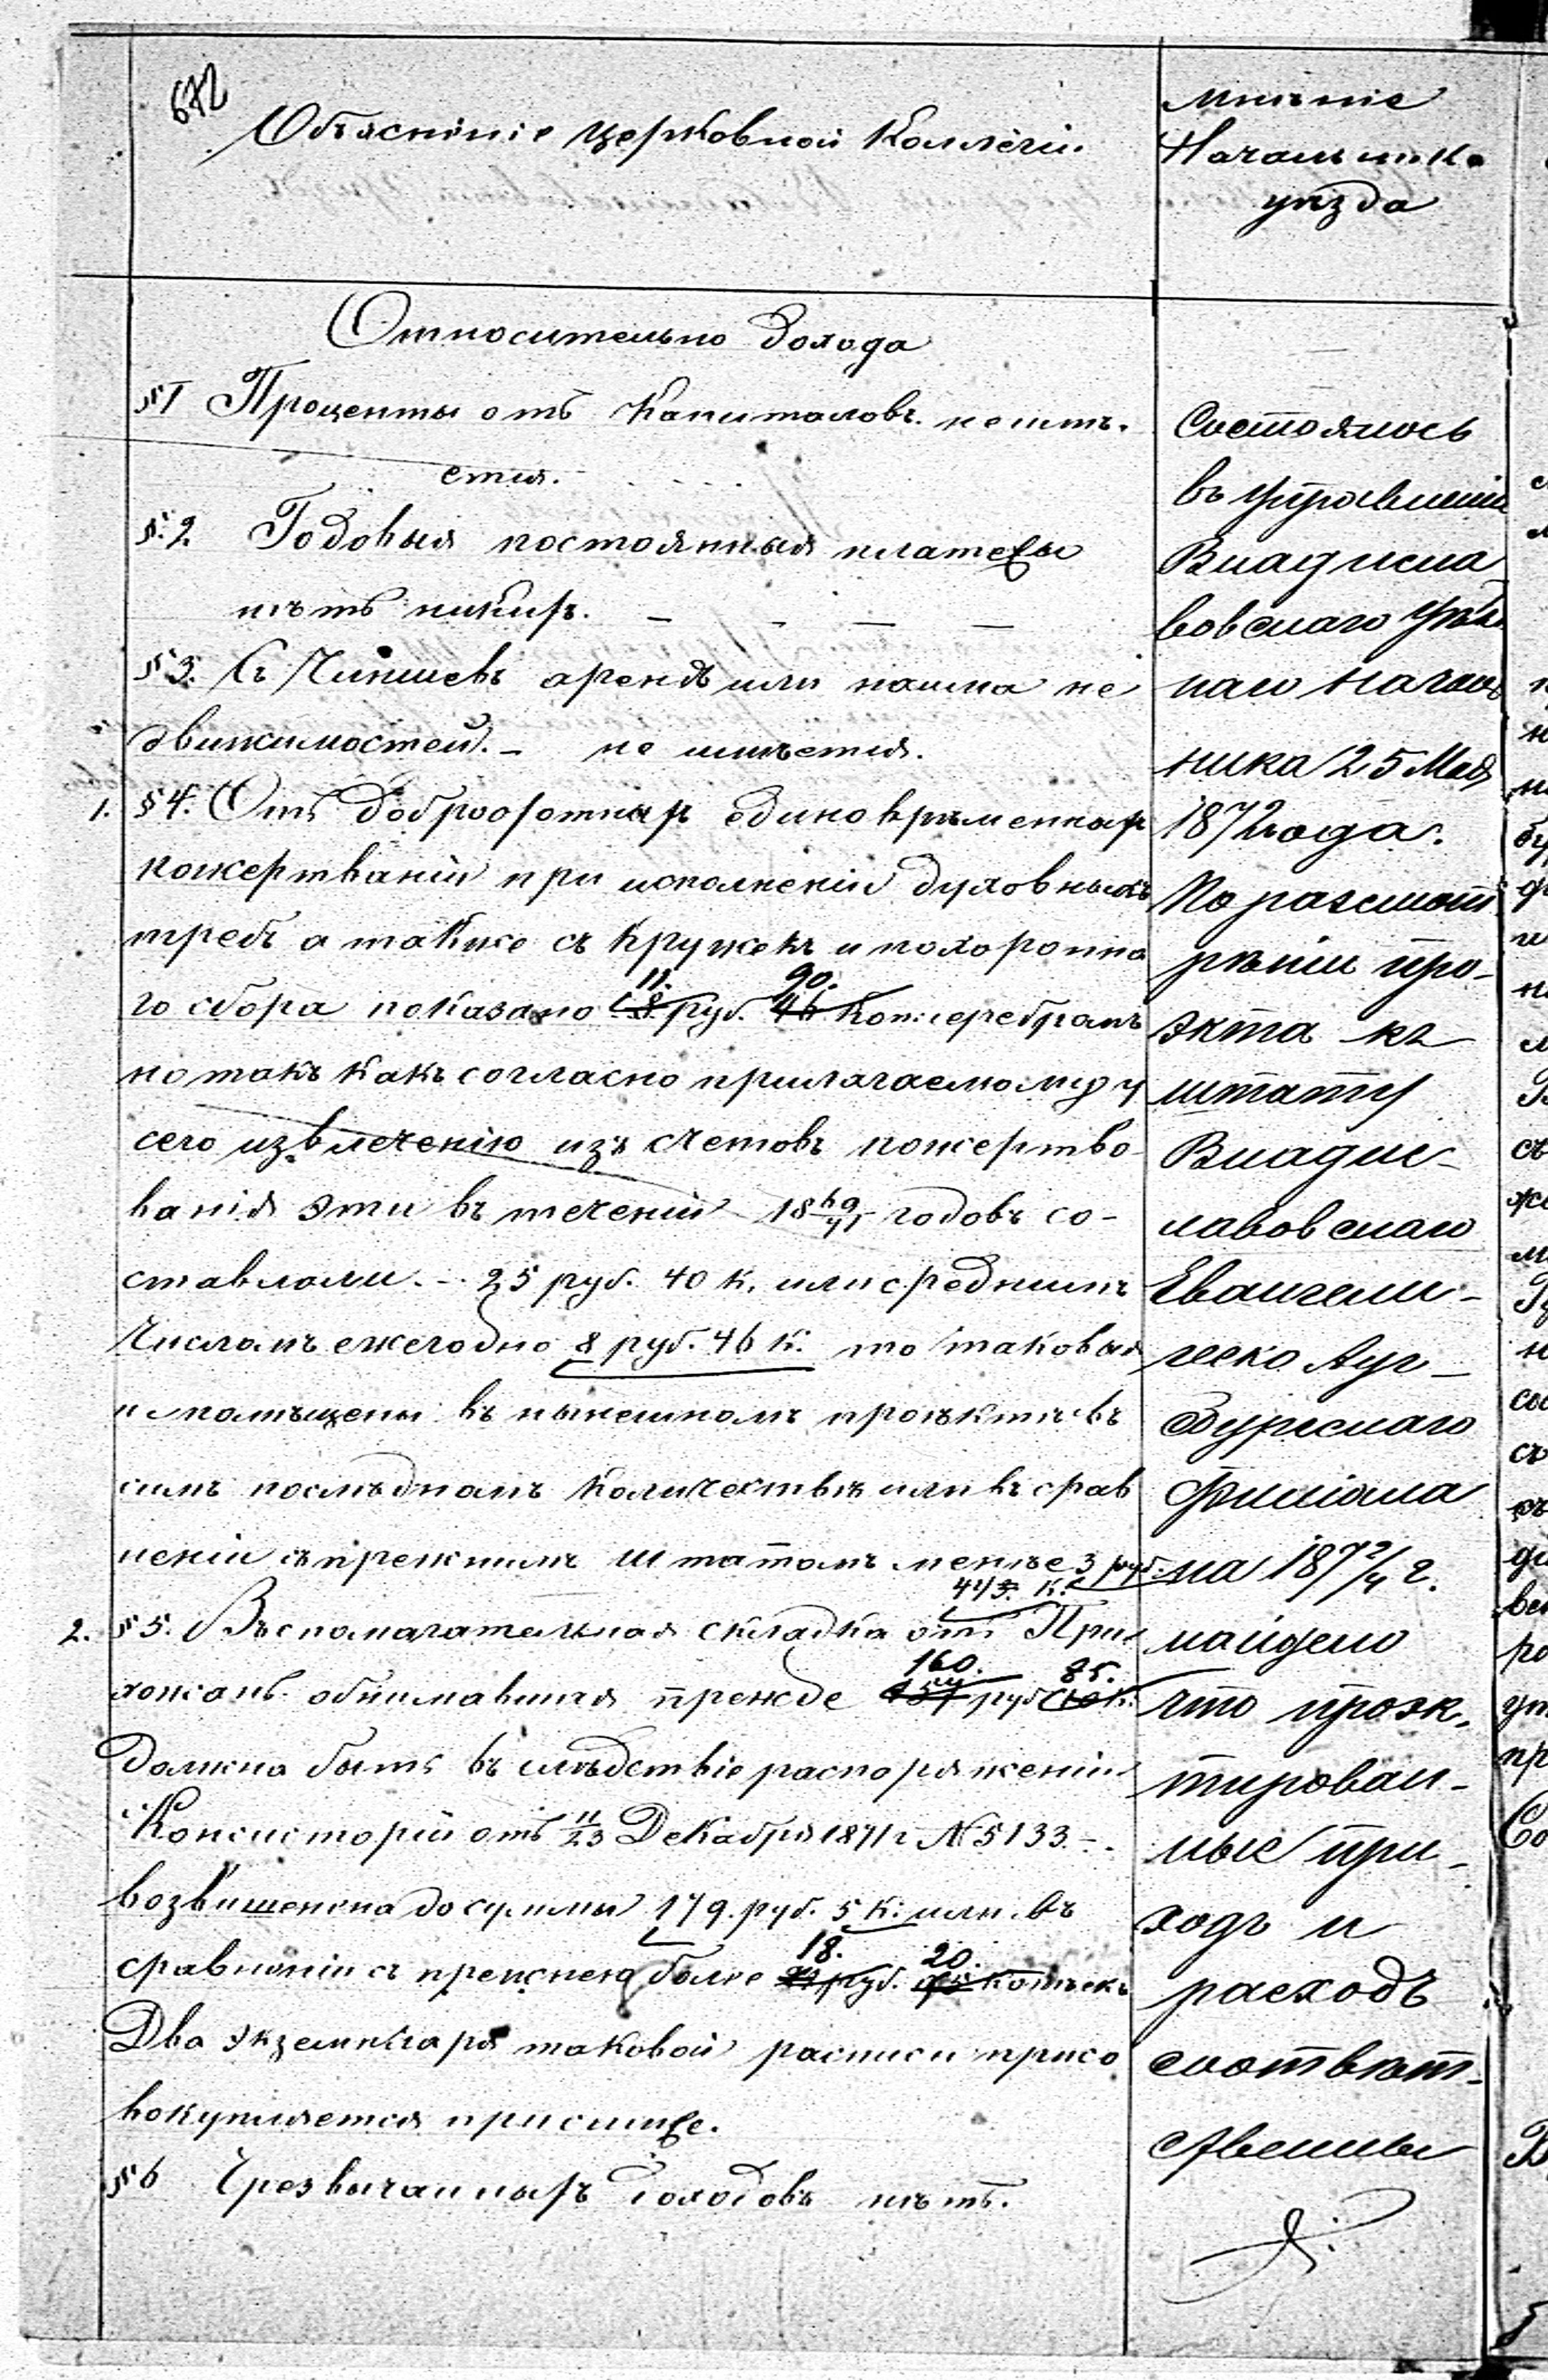 672
Объясненіе церковной Коллегіи.
Относительно дохода
§1 Проценты отъ Капиталовъ. не имѣ-
ется.
§ 2. Годовыя постоянныя платежы
нѣтъ никихъ. — — — —
§ 3. Съ Чиншевъ арендъ или найма не
движимостей. — не имѣется.
1. § 4. Отъ доброохотныхъ единовременныхъ
пожертваній при исполненіи духовныхъ
требъ а также съ кружекъ и похоронна
11. 90.
го сбора показано 8 руб. 46 Коп: серебромъ
но такъ какъ согласно прилагаемому у
сего извлеченію изъ счетовъ пожертво-
ванія эти въ теченіи 18 69/71 годовъ со-
ставляли. — 25 руб. 40 к. или среднимъ
Числомъ ежегодно 8 руб. 46 к. то таковыя
и помѣщены въ нынешномъ проэктѣ въ
симъ послѣдномъ Количествѣ или въ срав
неніи съ прежнимъ Штатомъ менѣе 3 руб.
44 К.
2. § 5. Въспомагательная складка отъ При
160. 85.
хожанъ обнимавшая прежде 157 руб К:
должна быть въ слѣдствіе распоряженіи
Консисторіи отъ 11/23 Декабря 1871 г № 5133 —.
возвишенна до суммы 179. руб. 5 К: или въ
18. 20.
сравненіи съ прежнею болѣе руб. копѣекъ
Два экземпляра таковой расписи присо
вокупляется при симъ же.
§ 6 Чрезвычайныхъ доходовъ нѣтъ.
Мнѣніе
Начальника
уѣзда
Состоялось
въ Управленіи
Владисла
вовскаго Уѣзд
наго Началь
ника 25 Мая
1872 года.
По разсмот
рѣніи про-
экта къ
штату
Владис-
лавовскаго
Евангели-
ческо Ауг-
сбургскаго
Филіала
на 187 2/4 г.
найдено
что проэк-
тирован-
ные при-
ходъ и
расходъ
соотвѣт-
ственны